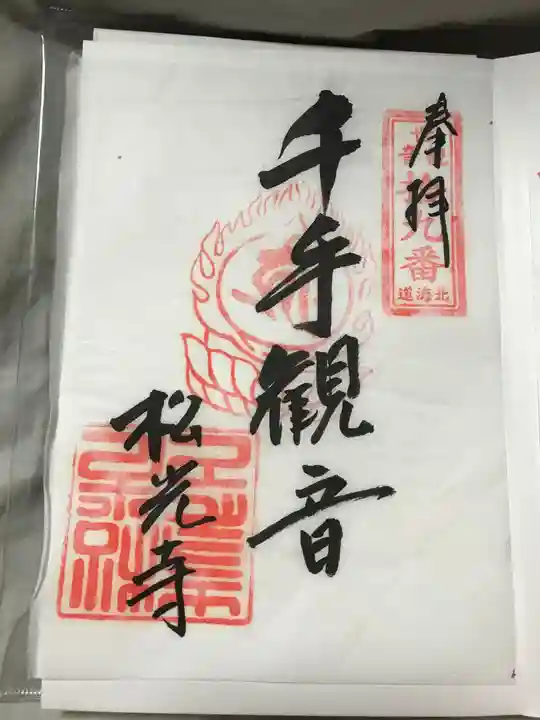 奉拝
番
北海道
千手観音
松光寺